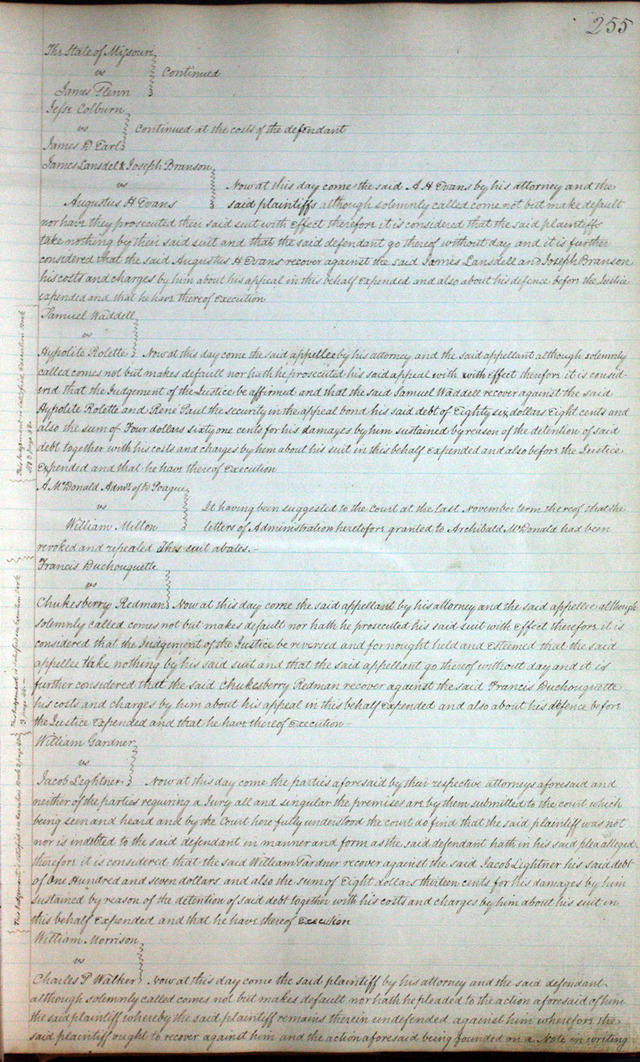 255
The State of Missouri
vs
Continued
James Flenn
Jesse Colburn
vs
Continued at the costs of the defendant
James D Earl
James Lansdel & Joseph Branson
vs
Now at this day come the said A H Evans by his attorney and the
Augustus H Evans
said plaintiffs although solemnly called come not but make default
nor have they prosecuted their said suit with Effect therefore it is considered that the said plaintiffs
take nothing by their said suit and that the said defendant go thereof without day and it is further
considered that the said Augustus H Evans recover against the said James Lansdell and Joseph Branson
his costs and charges by him about his appeal in this behalf Expended and also about his defence before the Justice
expended and that he have thereof Execution
Samuel Waddell
vs
Hypolite Rolette Now at this day come the said appellee by his attorney and the said appellant although solemnly
called comes not but makes default nor hath he prosecuted his said appeal with with Effect therefore it is consid-
erid that the Judgement of the Justice be affirmed and that the said Samuel Waddell recover against the said
Hypolite Rolette and Rene Paul the security in the appeal bond his said debt of Eighty six dollars Eight cents and
also the sum of Four dollars sixty one cents for his damages by him sustained by reason of the detention of said
debt together with his costs and charges by him about his suit in this behalf Expended and also before the Justice
Expended and that he have thereof Execution
A McDonald Admr of Teague
vs
It having been suggested to the court at the last November term thereof that the
William Milton
letters of Administration heretofore granted to Archibald McDonald had been
revoked and repealed This suit abates.-
Francis Duchouquette
vs
Chukesberry Redman Now at this day come the said appellant by his attorney and the said appellee although
solemnly called comes not but makes default nor hath he prosecuted his said suit with Effect therefore it is
considered that the Judgement of the Justice be reversed and for nought held and Esteemed that the said
appellee take nothing by his said suit and that the said appellant go thereof without day and it is
further considered that the said Chukesberry Redman recover against the said Francis Duchouquette
his costs and charges by him about his appeal in this behalf Expended and also about his defence before
the Justice Expended and that he have thereof Execution-
William Gardner
vs
Jacob Lightner Now at this day come the parties aforesaid by their respective attorneys aforesaid and
neither of the parties requiring a Jury all and singular the premises are by them submitted to the court which
being seen and heard and by the Court here fully understood the court do find that the said plaintiff was not
nor is indebted to the said defendant in manner and form as the said defendant hath in his said plea alleged
therefore it is considered that the said William Gardner recover against the said Jacob Lightner his said debt
of One Hundred and seven dollars and also the sum of Eight dollars thirteen cents for his damages by him
sustained by reason of the detention of said debt together with his costs and charges by him about his suit in
this behalf Expended and that he have thereof Execution
William Morrison
vs
Charles P Walker Now at this day come the said plaintiff by his attorney and the said defendant
although solemnly called comes not but makes default nor hath he pleaded to the action aforesaid of him
the said plaintiff whereby the said plaintiff remains therein undefended against him wherefore the
said plaintiff ought to recover against him and the action aforesaid being founded on a Note in writing